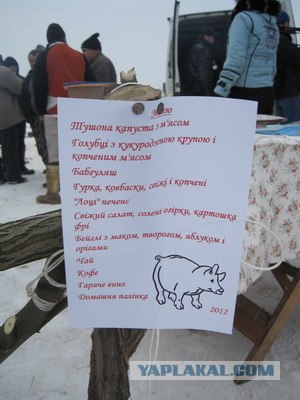 Меню
Тушона капуста з м'ясом
Голубці з кукурудзяною крупою і
копченим м'ясом
Бабгуляш
Гурка, ковбаски, свіжі і копчені
"Лоці" печенє
Свіжий салат, солені огірки, картошка
фрі
Бейглі з маком, творогом, яблуком і
орігами
Чай
Кофе
Гаряче вино
Домашня палінка
2012
YAPLAKAL.COM